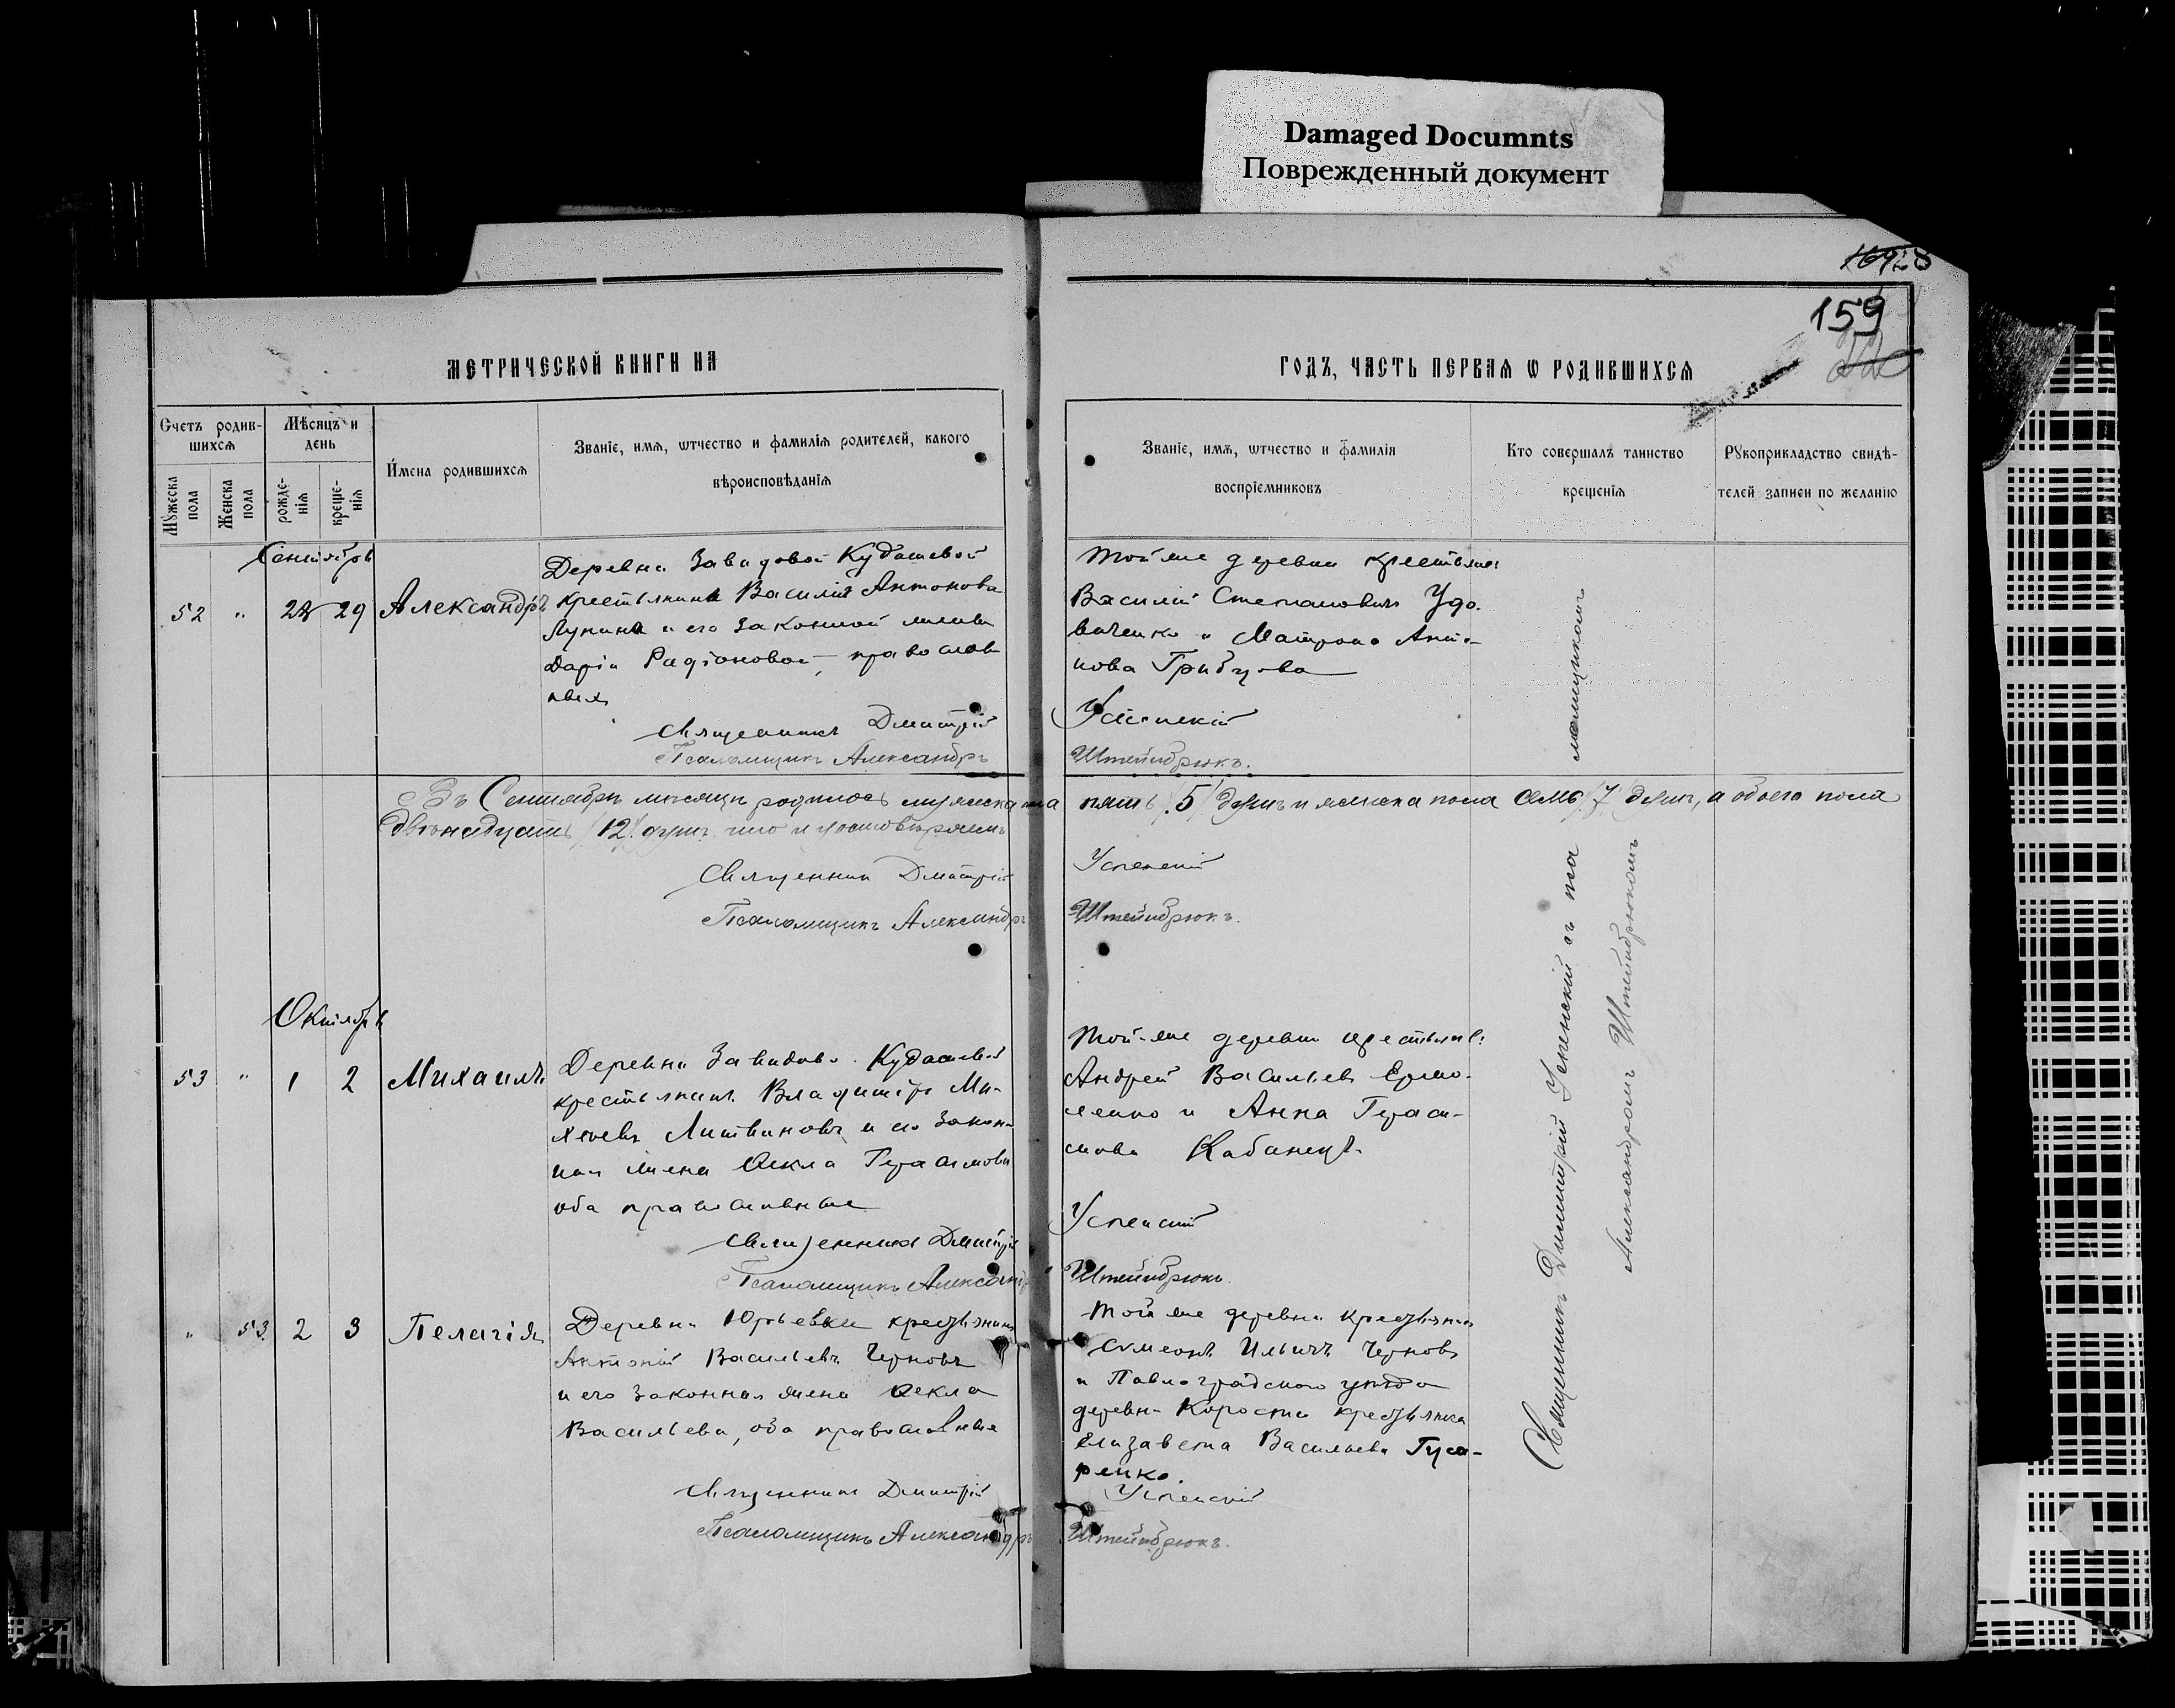 Damaged Documnts
Поврежденный документ
159
МЕТРИЧЕСКОЙ КНИГИ НА
ГОДЪ, ЧАСТЬ ПЕРВАЯ Ѡ РОДИВШИХСЯ
Счетъ родив-
шихся
Мѣсяцъ и
день
Мужеска
пола
Женска
пола
рожде-
нія
креще-
нія
Имена родившихся
Званіе, имя, ѡтчество и фамилія родителей, какого
вѣроисповѣданія
Званіе, имя, ѡтчество и фамилія
воспріемниковъ
Кто совершалъ таинство
крещенія
Рукоприкладство свидѣ-
телей записи по желанію
Сентябрь
52 " 28 29 Александръ
Деревни Завадовой Кудашевой
крестьянина Василія Антонова
Лунина и его законной жены
Дарьи Радіоновой, православ
ных
Священникъ Дмитрій
Псаломщикъ Александръ
Той же деревни крестьяне
Василій Степановичъ Удо-
виченко и Матрона Анто-
нова
Успенскій
Штейнбрюкъ.
Въ Сентябрѣ мѣсяцѣ родилось мужеска пола пять /5/ душъ и женска пола семь /7/ душъ, а обоего пола
двѣнадцать /12/ душъ что и удостовѣряемъ
Священникъ Дмитрій
Успенскій
Псаломщикъ Александръ
Штейнбрюкъ.
Октябрь
53 " 1 2 Михаилъ
Деревни Кудашевой
крестьянинъ Владиміръ Ми-
хеевъ Литвиновъ и его закон-
ная жена Ѳекла Герасимова
оба православные
Священникъ Дмитрій
Псаломщикъ Александръ
Той-же деревни крестьяне:
Андрей Васильевъ Ермо-
ленко и Анна Гераси-
мова Кабанецъ.
Успенскій
Штейнбрюкъ.
" 53 2 3 Пелагія
Деревни Юрьевки крестьянинъ
Антоній Васильевъ Черновъ
и его законная жена Ѳекла
Васильева, оба православные
Священникъ Дмитрій
Псаломщикъ Александръ
Той же деревни крестьянинъ
Симеонъ Ильичъ Черновъ
и Павлоградскаго уѣзда
деревни крестьянка
Елизавета Васильева Гуса-
ренко.
Успенскій
Штейнбрюкъ.
Священникъ Димитрій Успенскій съ пса
ломщикомъ
Александромъ Штейнбрюкомъ